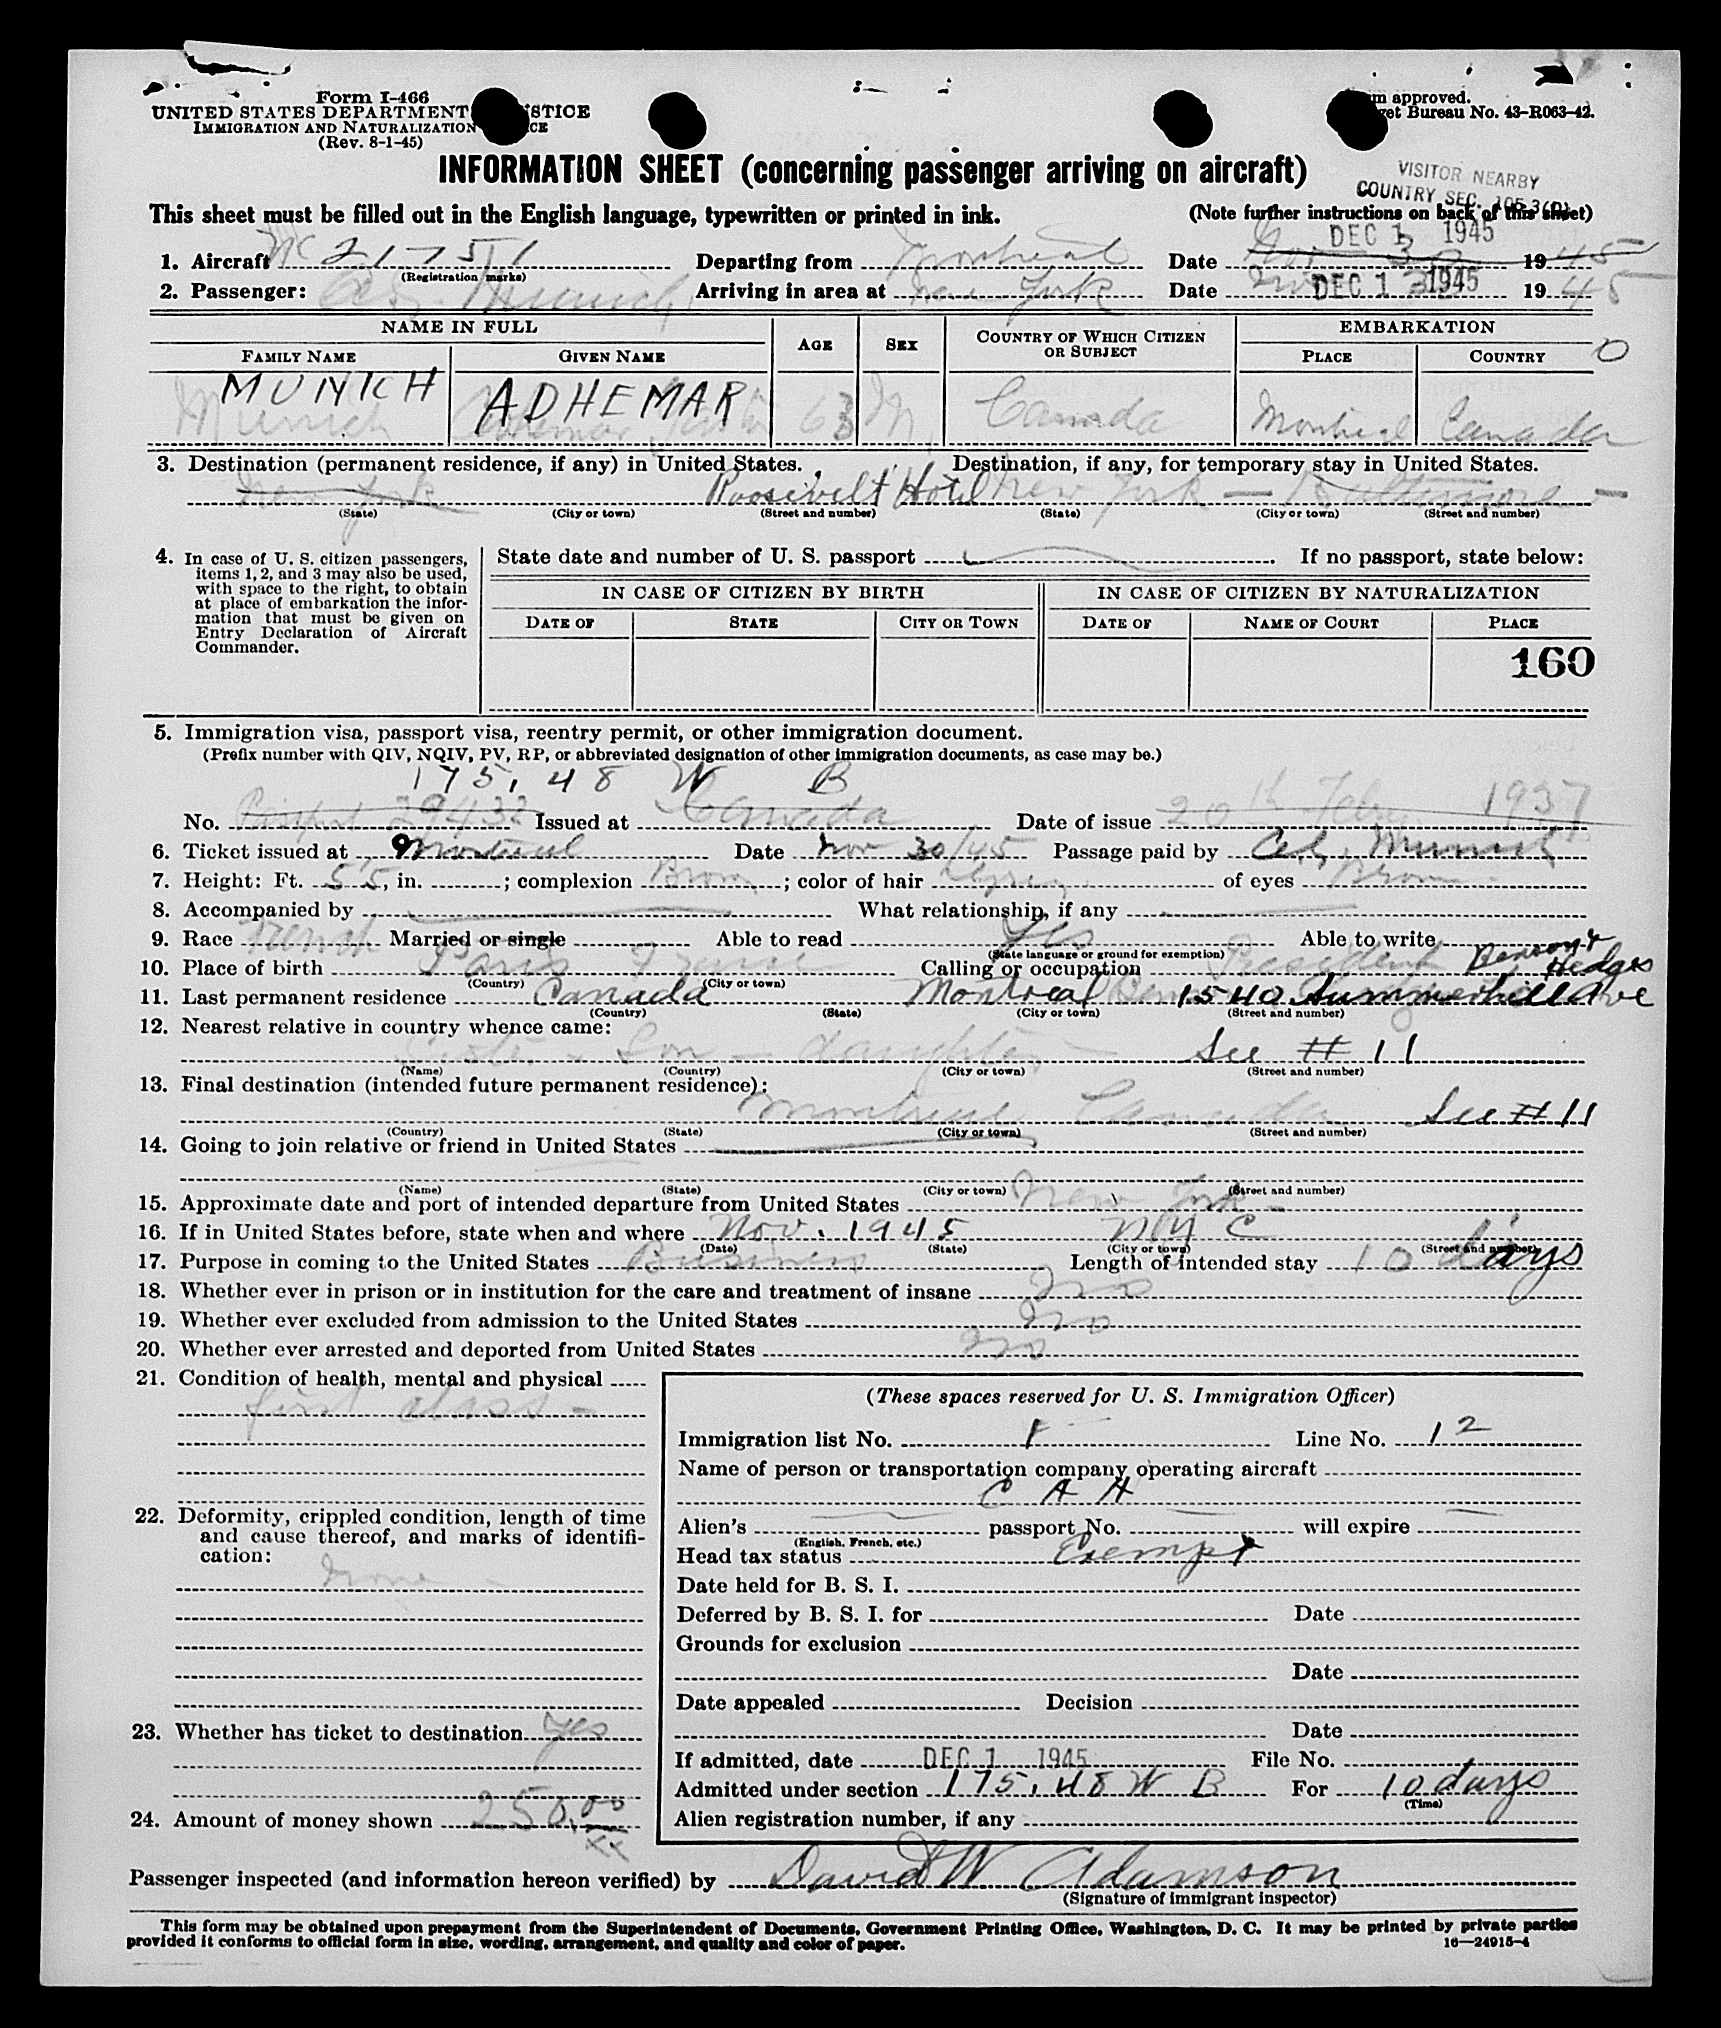 Form I-466
UNITED STATES DEPARTMENT STICE
IMMIGRATION AND NATURALIZATION CE
(Rev. 8-1-45)
m approved.
et Bureau No. 43-R063-42.
INFORMATION SHEET (concerning passenger arriving on aircraft)
VISITOR NEARBY
COUNTRY SEC.
This sheet must be filled out in the English language, typewritten or printed in ink. (Note further instructions on back of this sheet)
DEC 1, 1945
1. Aircraft NC 21751 Departing from Montreal Date Nov 30 1945
(Registration marks)
2. Passenger: Munich Arriving in area at New York Date DEC 1 1945 1945
NAME IN FULL AGE SEX COUNTRY OF WHICH CITIZEN OR SUBJECT EMBARKATION
FAMILY NAME GIVEN NAME PLACE COUNTRY 0
MUNICH ADHEMAR
Munich Adhemar 63 M. Canada Montreal Canada
3. Destination (permanent residence, if any) in United States. Destination, if any, for temporary stay in United States.
New York Roosevelt Hotel New York — Baltimore —
(State) (City or town) (Street and number) (State) (City or town) (Street and number)
4. In case of U. S. citizen passengers, items 1, 2, and 3 may also be used, with space to the right, to obtain at place of embarkation the information that must be given on Entry Declaration of Aircraft Commander.
State date and number of U. S. passport If no passport, state below:
IN CASE OF CITIZEN BY BIRTH IN CASE OF CITIZEN BY NATURALIZATION
DATE OF STATE CITY OR TOWN DATE OF NAME OF COURT PLACE
160
5. Immigration visa, passport visa, reentry permit, or other immigration document.
(Prefix number with QIV, NQIV, PV, RP, or abbreviated designation of other immigration documents, as case may be.)
175.48 W B
No. Passport 29432 Issued at Canada Date of issue 20th Feb. 1937
6. Ticket issued at Montreal Date Nov 30/45 Passage paid by Ad. Munich
7. Height: Ft. 5 5, in. ; complexion Brown ; color of hair Grey of eyes Brown
8. Accompanied by What relationship, if any
9. Race French Married or single Able to read Yes Able to write
(State language or ground for exemption)
10. Place of birth Paris France Calling or occupation President Benson & Hedges
(Country) (City or town)
11. Last permanent residence Canada Montreal 1540 Summerhill Ave
(Country) (State) (City or town) (Street and number)
12. Nearest relative in country whence came:
Son — daughter — See # 11
(Name) (Country) (City or town) (Street and number)
13. Final destination (intended future permanent residence):
Montreal Canada See # 11
(Country) (State) (City or town) (Street and number)
14. Going to join relative or friend in United States
(Name) (State) (City or town) (Street and number)
15. Approximate date and port of intended departure from United States New York
16. If in United States before, state when and where Nov. 1945 NYC
(Date) (State) (City or town) (Street and number)
17. Purpose in coming to the United States Business Length of intended stay 10 days
18. Whether ever in prison or in institution for the care and treatment of insane No
19. Whether ever excluded from admission to the United States No
20. Whether ever arrested and deported from United States No
21. Condition of health, mental and physical
first class —
22. Deformity, crippled condition, length of time and cause thereof, and marks of identification:
None —
23. Whether has ticket to destination Yes
24. Amount of money shown 250.00
xx
(These spaces reserved for U. S. Immigration Officer)
Immigration list No. 1 Line No. 12
Name of person or transportation company operating aircraft
C A A
Alien's passport No. will expire
(English, French, etc.)
Head tax status Exempt
Date held for B. S. I.
Deferred by B. S. I. for Date
Grounds for exclusion
Date
Date appealed Decision
Date
If admitted, date DEC 1 1945 File No.
Admitted under section 175.48 W B For 10 days
(Time)
Alien registration number, if any
Passenger inspected (and information hereon verified) by David W Adamson
(Signature of immigrant inspector)
This form may be obtained upon prepayment from the Superintendent of Documents, Government Printing Office, Washington, D. C. It may be printed by private parties
provided it conforms to official form in size, wording, arrangement, and quality and color of paper. 16—24915-4